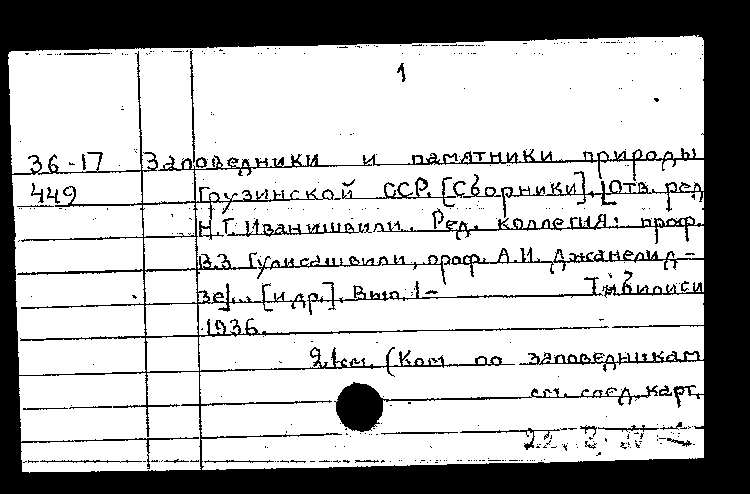 1
36-17 Заповедники и памятники природы
449 Грузинской ССР. [Сборники]. [Отв. ред
Н.Г. Иванишвили. Ред. коллегия: проф.
В.З. Гулисашвили, проф. А.И. Джанелид-
зе]... [и др.]. Вып. 1- Тбилиси
1936.
см. (Ком по заповедникам
см. след. карт.